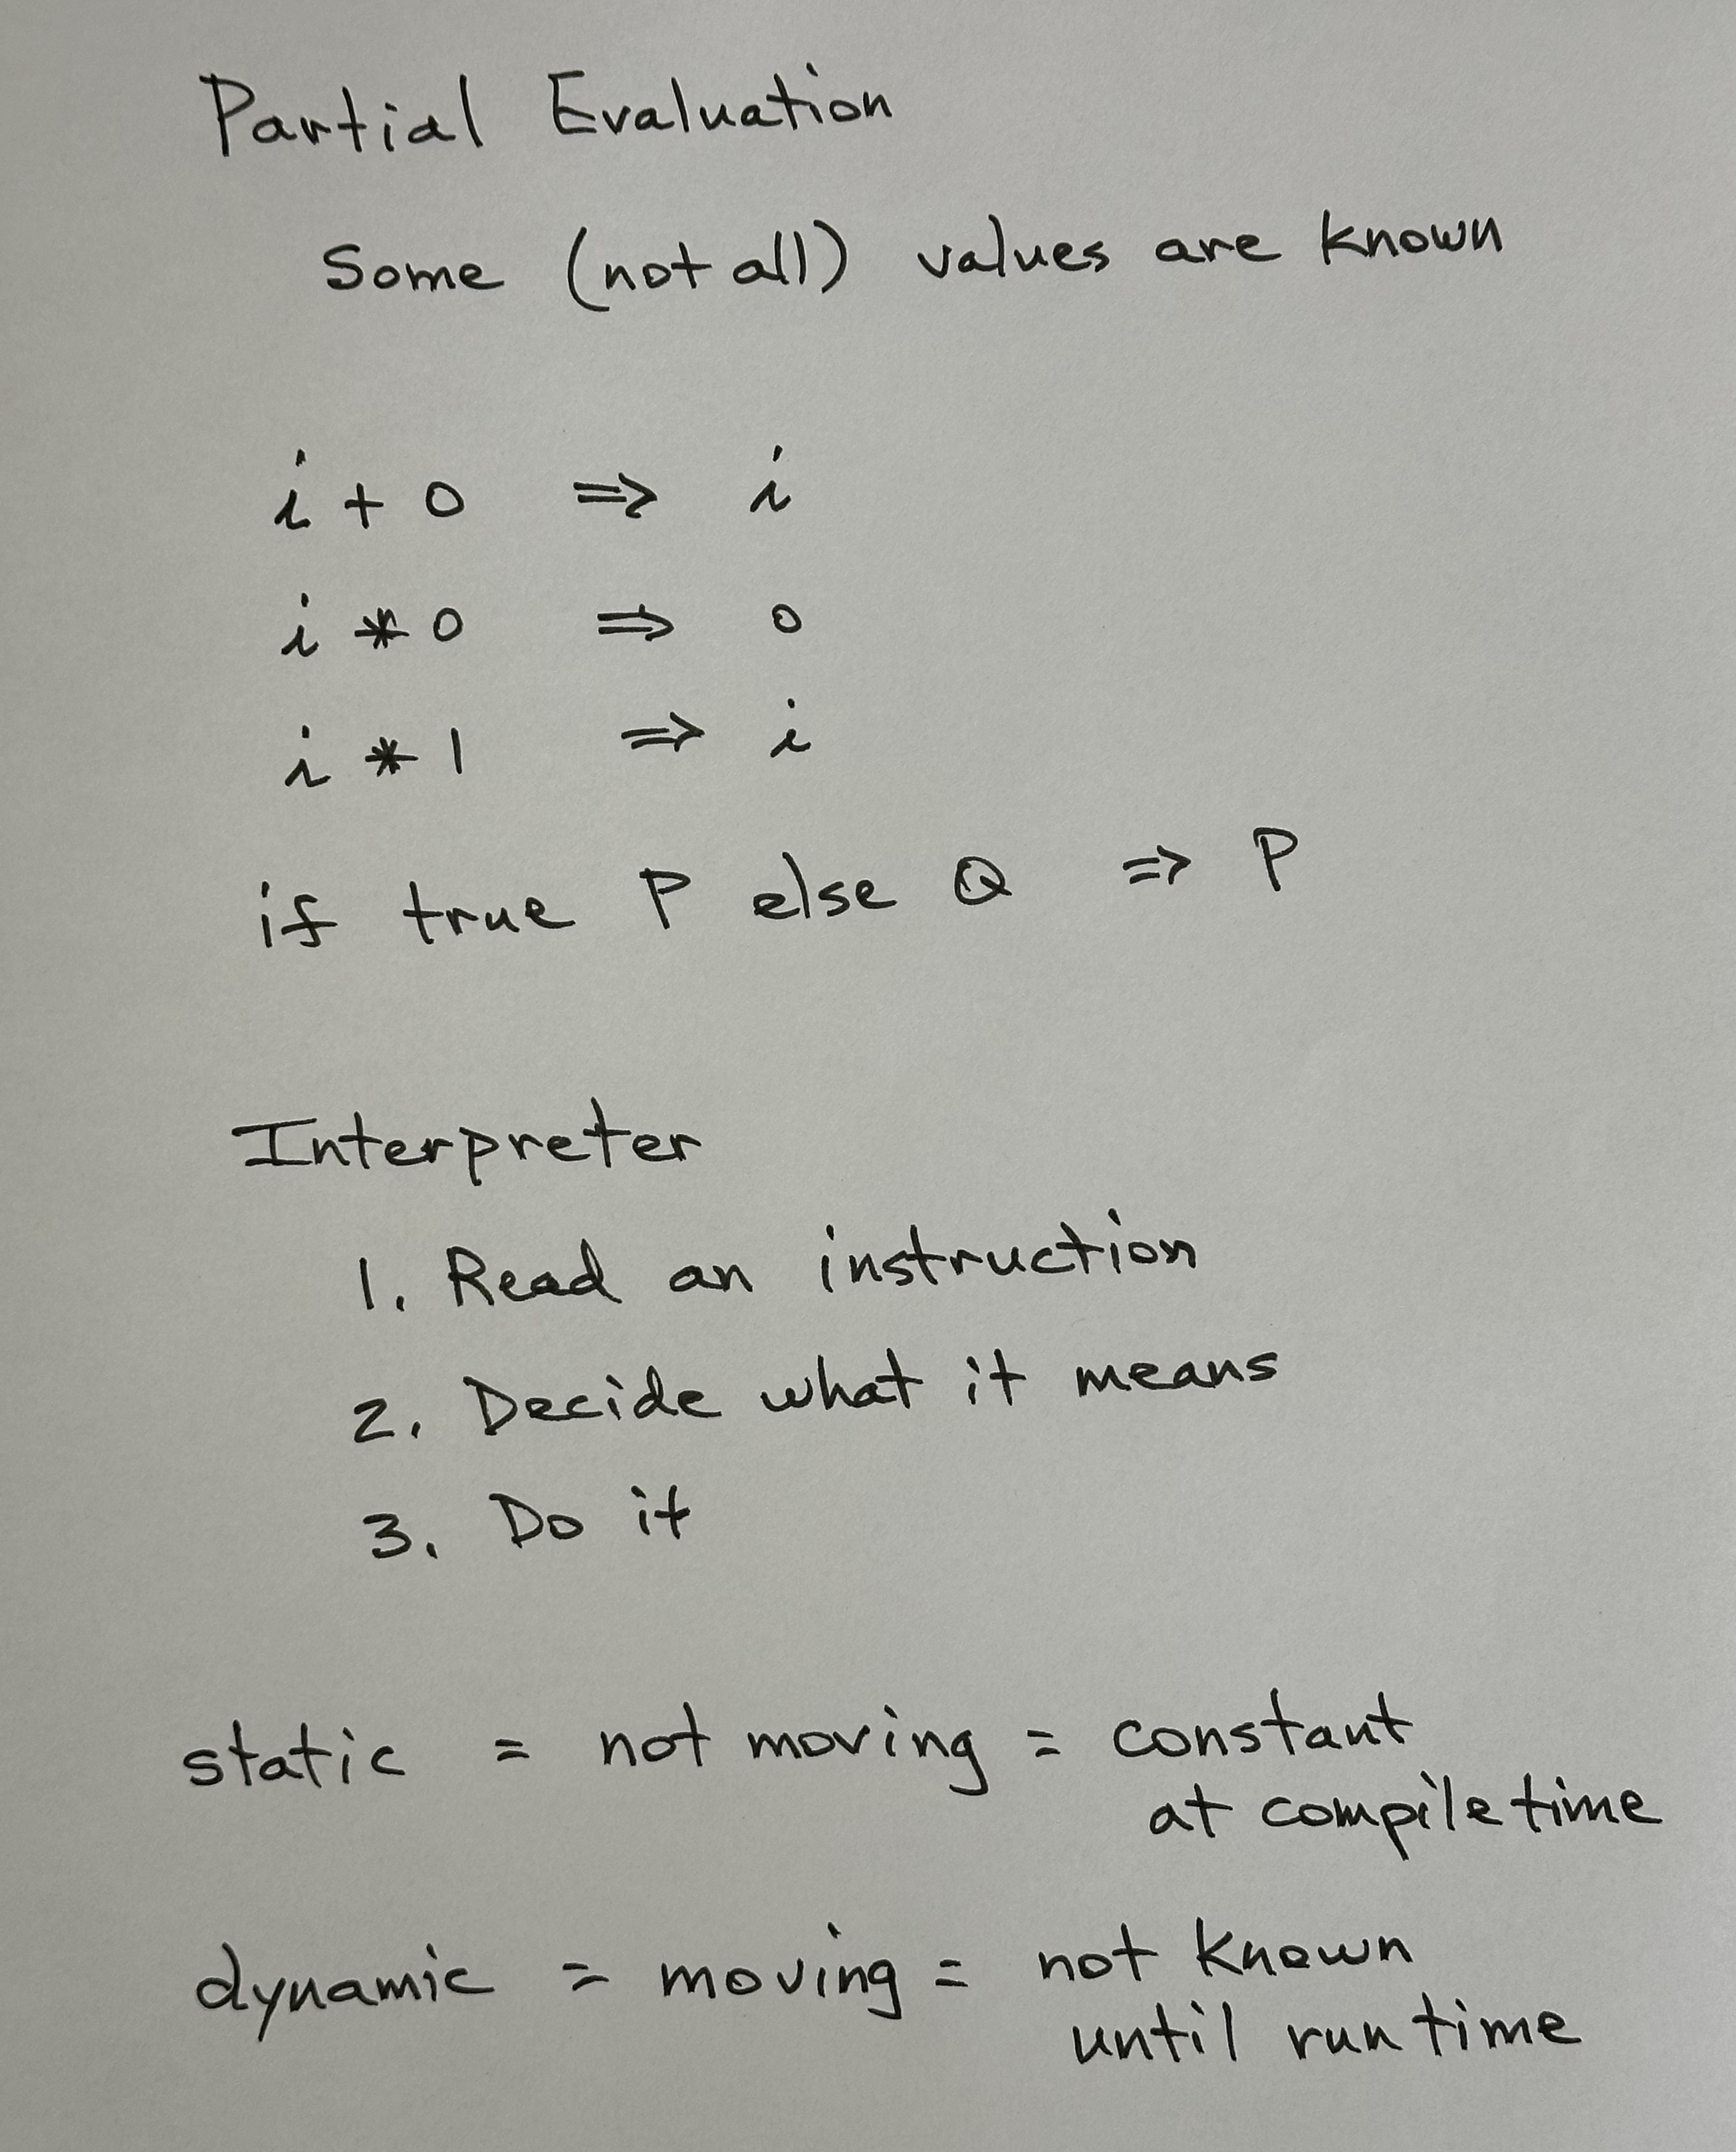 Partial Evaluation
Some (not all) values are known
i + 0 ⇒ i
i * 0 ⇒ 0
i * 1 ⇒ i
if true P else Q ⇒ P
Interpreter
1. Read an instruction
2. Decide what it means
3. Do it
static = not moving = constant
at compile time
dynamic = moving = not known
until run time